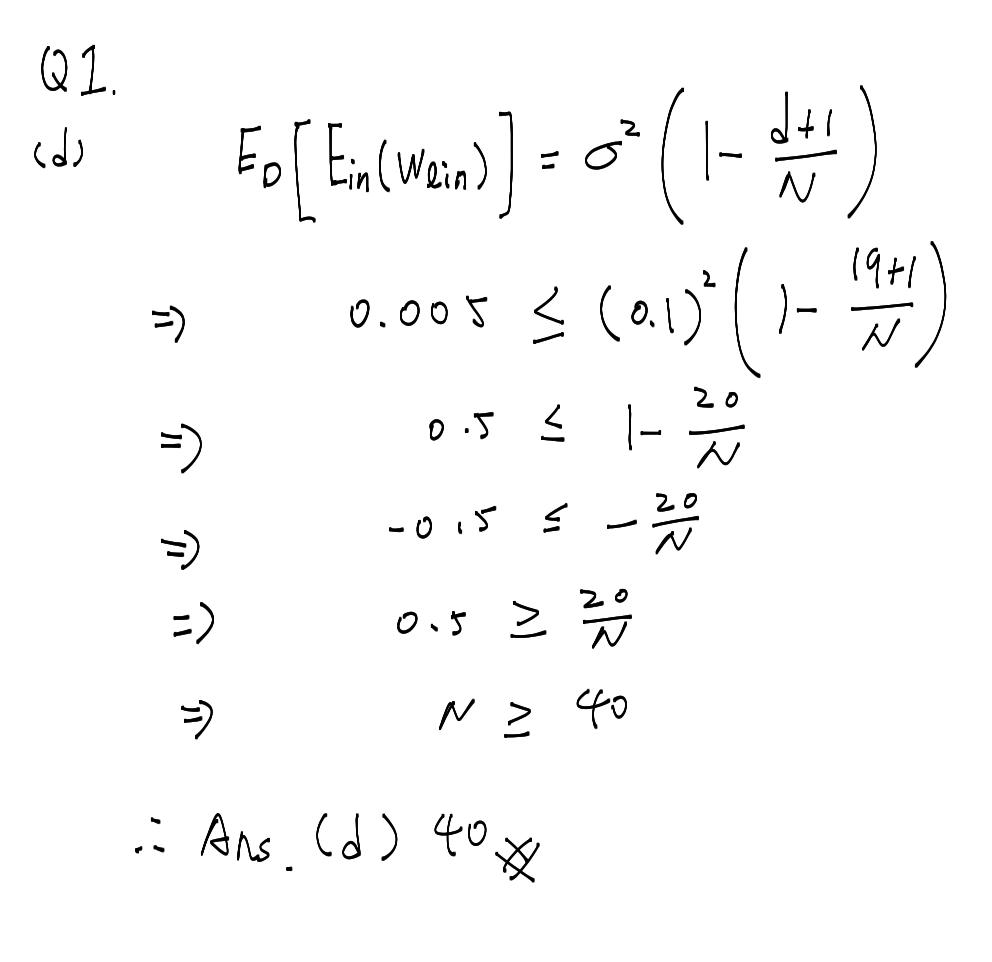 Q1.
(d) E_D[E_in(w_lin)] = σ²(1 - (d+1)/N)
⇒ 0.005 ≤ (0.1)²(1 - (19+1)/N)
⇒ 0.5 ≤ 1 - 20/N
⇒ -0.5 ≤ - 20/N
⇒ 0.5 ≥ 20/N
⇒ N ≥ 40
∴ Ans. (d) 40